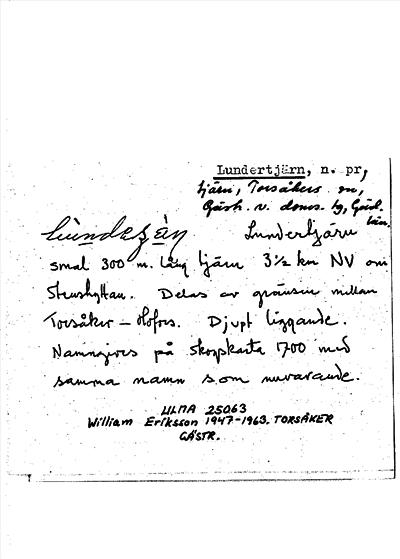 Lundertjärn, n. pr,
tjärn, Torsåkers sn,
Gästr. v. doms. tg, Gävl.
län.
Lundertjärn
smal 300 m. lång tjärn 3½ km NV om
Stenshyttan. Delas av gränsen mellan
Torsåker – Hofors. Djupt liggande.
Namngives på skogskarta 1700 med
samma namn som nuvarande.
ULMA 25063
William Eriksson 1947-1963. TORSÅKER
GÄSTR.